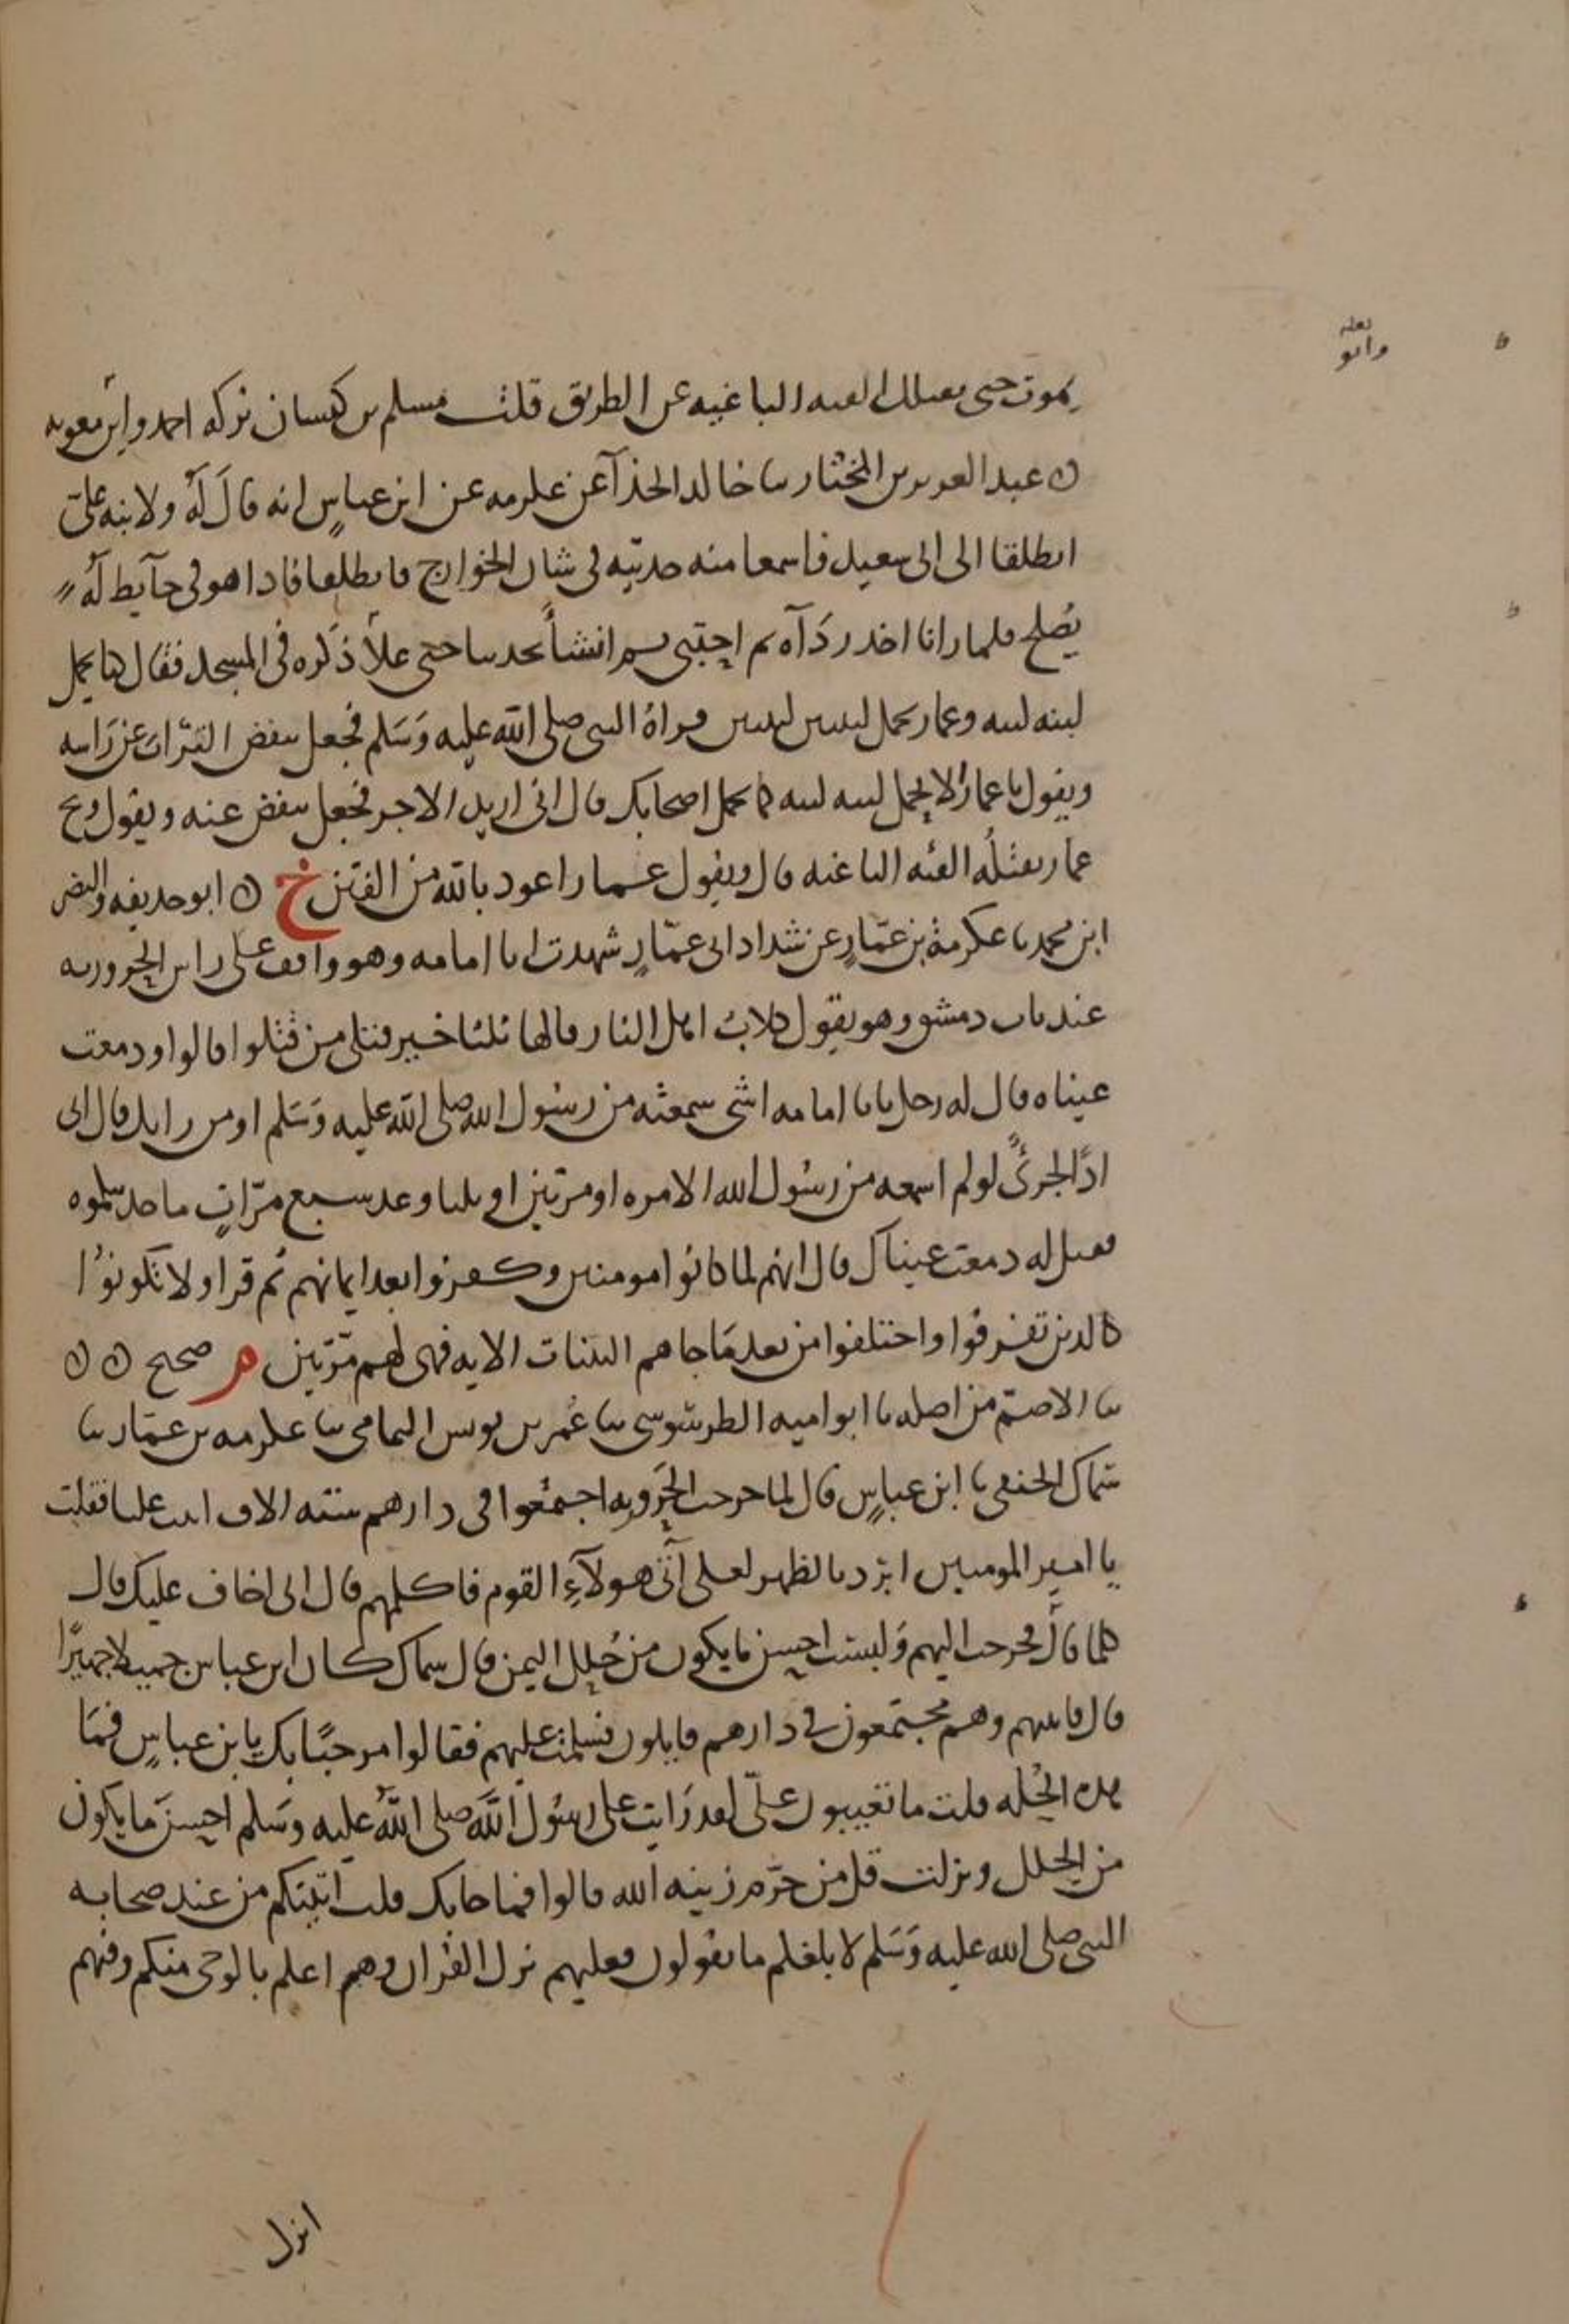 لعله
وابو
يموت حتى تقتلك الفئه الباغيه عن الطريق قلت مسلم بن كيسان تركه احمد وابن معويه
عبد العزيز بن المختار ثنا خالد الحذآ عن عكرمه عن ابن عباسٍ انه قال لَهُ ولابنه على
انطلقا الى ابى سعيد فاسمعا منه حديثه فى شان الخوارج فانطلقا فاذا هو فى حآيط لَهُ
يُصلح فلما رانا اخذ ردَآه ثم احتبى ثم انشأ يحدثنا حتى علا ذكره فى المسجد فقال كنا نحمل
لبنه لبنه وعمار يحمل لبنتين لبنتين فراهُ النبى صلى الله عليه وَسَلم فجعل ينفض التراب عن رَاسه
ويقول يا عمارُ الا تحمل لبنه لبنه كما يحمل اصحابك قال انى اريد الاجر فجعل ينفض عنه ويقول ويح
عمار تقتلُه الفئه الباغيه قال ويقول عمار اعوذ بالله من الفتن خ ابو حذيفه والنضر
ابن محمد ثنا عكرمة بن عمّارٍ عن شداد ابى عمّارٍ شهدت ابا امامه وهو واقف على راس الحروريه
عند باب دمشق وهو يقول كلابُ اهل النار قالها ثلثا خير قتلى من قتلوا قالوا ودمعت
عيناه قال له رجل يا با امامه اشى سمعته من رسُول الله صلى الله عليه وَسَلم او من رايك قال انى
اذًا لجرىٌ لو لم اسمعه من رسُول الله الا مره او مرتين او ثلثا وعد سبع مرّاتٍ ما حدثتكموه
فقيل له دمعت عيناك قال انهم لما كانوا مومنين وكفروا بعد ايمانهم ثم قرا ولا تكونوُا
كالذين تفرقوا واختلفوا من بعد مَا جاهم البينات الايه فهى لهم مَرّتين م صحيح
ثنا الاصمّ من اصله ثنا ابو اميه الطرسُوسى ثنا عُمر بن يونس اليمامى ثنا عكرمه بن عمّار ثنا
سماك الحنفى ثنا ابن عباسٍ قال لما خرجت الحَروريه اجتمعُوا فى دارهم سته الاف اتيت عليا فقلت
يا امير المومنين ابرد بالظهر لعلى آتى هولآءِ القوم فاكلمهم قال انى اخاف عليك قال
كلا قالَ فخرجت اليهم وَلبست احسن ما يكون من حُلل اليمن قال سماك كان ابن عباس جميلا جهيرًا
قال فاتيتهم وهم مجتمعون فى دارهم قايلون فسلمت عليهم فقالوا مرحبًا بك يابن عباسٍ فمَا
هذه الحُله قلت ما تعيبون علىّ لقد رَايت على رسُول الله صلى اللهُ عليه وسَلم احسن ما يكون
من الحلل ونزلت قل من حرّم زينه الله قالوا فما جا بك قلت اتيتكم من عند صحابه
النبى صلى الله عليه وَسَلم لابلغكم ما يقولون فعليهم نزل القرآن وهم اعلم بالوحى منكم وفيهم
انزل